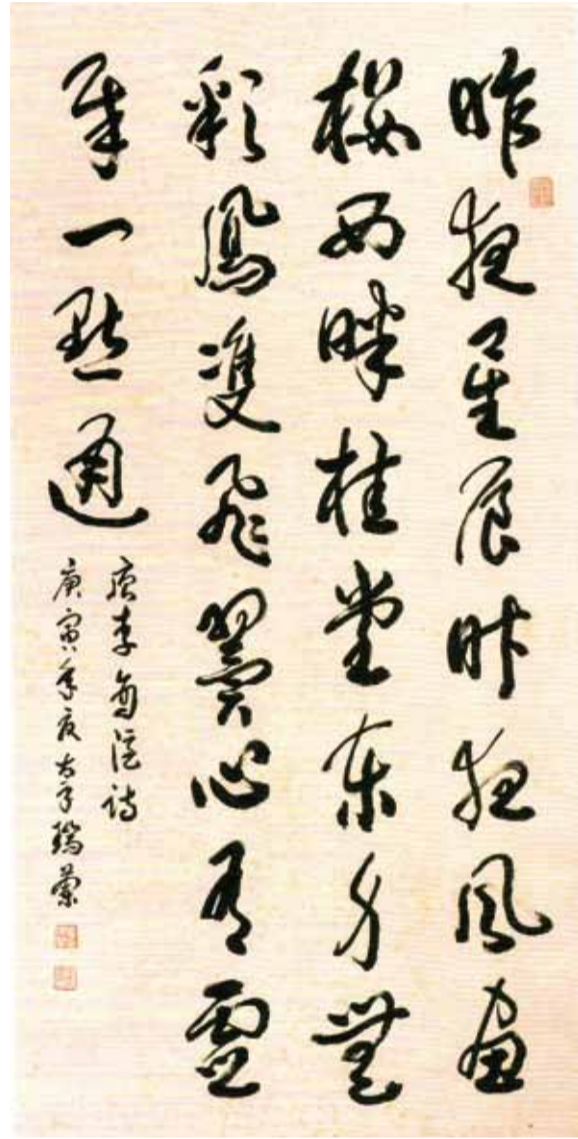 昨夜星辰昨夜風畫
樓西畔桂堂東身無
彩鳳雙飛翼心有靈
犀一點通
唐李商隱詩
庚寅年夏 瑞蘭